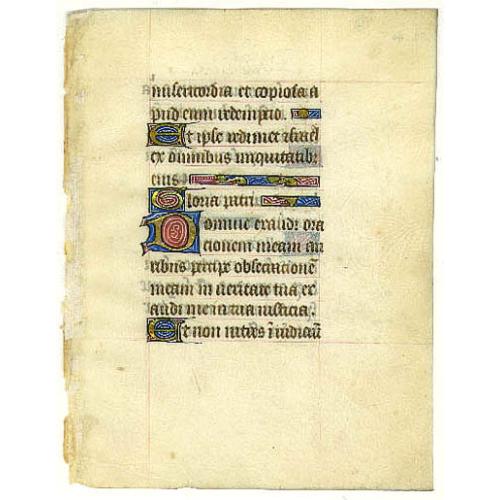 misericordia et copiosa a
pud eum redemptio.
Et ipse redimet israel
ex omnibus iniquitatib
eius
Gloria patri
Domine exaudi ora
tionem meam au
ribus percipe obsecrationē
meam in veritate tua ex
audi me in tua iusticia.
Et non intres ī iudiciū